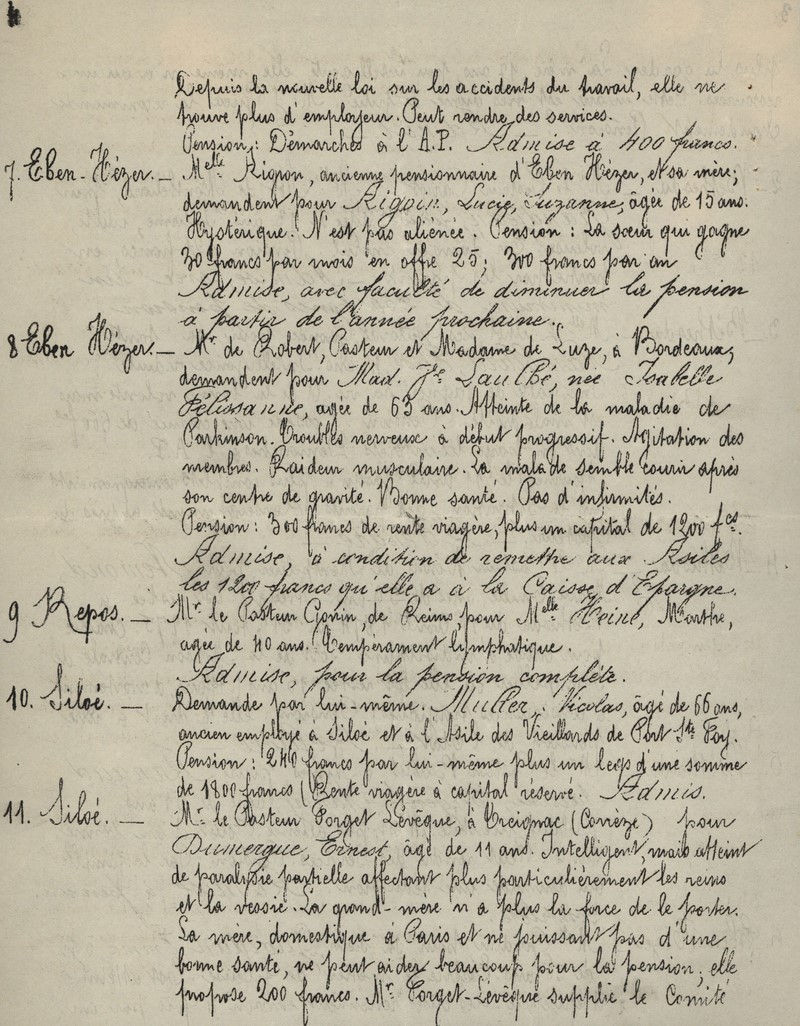 Depuis la nouvelle loi sur les accidents du travail, elle ne
trouve plus d'employeur. Peut rendre des services.
Pension: Démarches à l'A.P. Admise à 400 francs.
7. Eben-Hézer. — Melle Rignon, ancienne pensionnaire d'Eben Hézer, et sa mère;
demandent pour Rigoin, Lucie, Suzanne, âgée de 15 ans.
Hystérique. N'est pas aliénée. Pension: La sœur qui gagne
30 francs par mois en offre 25; 300 francs par an
Admise, avec faculté de diminuer la pension
à partir de l'année prochaine.
8 Eben Hézer. — Mr. de Robert, Pasteur et Madame de Luze, à Bordeaux,
demandent pour Mad. Vve Laulhé, née Isabelle
Pélissanne, agée de 63 ans. Atteinte de la maladie de
Parkinson. Troubles nerveux à début progressif. Agitation des
membres. Raideur musculaire. La malade semble courir après
son centre de gravité. Bonne santé. Pas d'infirmités.
Pension: 300 francs de rente viagère, plus un capital de 1200 fcs.
Admise, à condition de remettre aux Asiles
les 1200 francs qu'elle a à la Caisse d'Epargne.
9 Repos. — Mr. le Pasteur Gonin, de Reims, pour Melle Heine, Marthe,
agée de 40 ans. Tempérament lymphatique.
Admise, pour la pension complète.
10. Siloé. — Demande par lui-même. Muller, Nicolas, âgé de 66 ans,
ancien employé à Siloé et à l'Asile des Vieillards de Port Ste Foy.
Pension: 240 francs par lui-même plus un legs d'une somme
de 1800 francs (Rente viagère à capital réservé. Admis.
11. Siloé. — Mr. le Pasteur Forget Lévêque, à Treignac (Corrèze) pour
Dumergue, Ernest, âgé de 11 ans. Intelligent, mais atteint
de paralysie partielle affectant plus particulièrement les reins
et la vessie. La grand-mère n'a plus la force de le porter.
La mère, domestique à Paris et ne jouissant pas d'une
bonne santé, ne peut aider beaucoup pour la pension; elle
propose 200 francs. Mr. Forget-Lévêque supplie le Comité